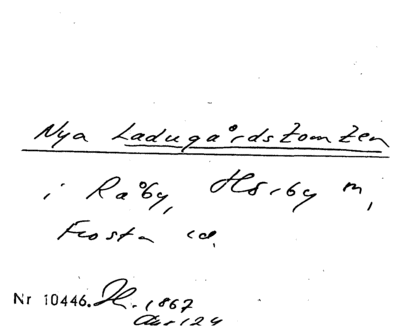 Nya Ladugårdstomten
i Råby, Hörby m,
Frosta
Nr 10446. 1867
124